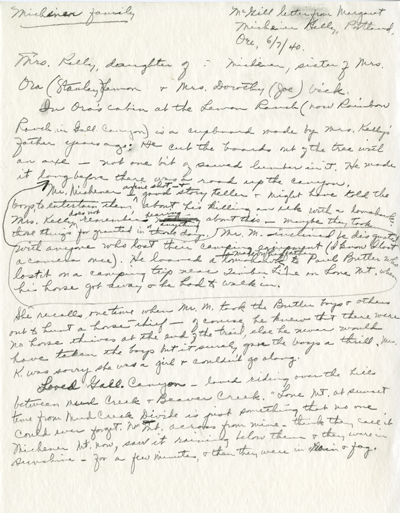 Michener family
McGill letter from Margaret
Michener Kelly, Portland,
Ore, 6/7/40.
Mrs. Kelly, daughter of - Michener, sister of Mrs.
Ora (Stanley) Lemon & Mrs. Dorothy (Joe)
In Ora's cabin at the Lemon Ranch (now Rainbow
Ranch in Gall. Canyon) is a cupboard made by Mrs. Kelly's
father years ago. He cut the boards out of the tree with
an axe - not one bit of sawed lumber in it. He made
it long before there was a road up the canyon.
Mr. Michener a good story teller - might have told the
boys to entertain them about his killing an elk with a
Mrs. Kelly does not remember about this - maybe they took
those things for granted in those days. Mr. M.
with anyone who lost their camping equipment (I know I lost
a camera once). He loaned a to Paul Butler who
lost it on a camping trip near timber line in Lone Mt. when
his horse got away & he had to walk in.
She recalls one time when Mr. M. took the Butler boys & others
out to hunt a horse thief - of course he knew that there were
no horse thieves at the end of the trail, else he never would
have taken the boys but it surely gave the boys a thrill. Mrs.
K. was sorry she was a girl & couldn't go along.
Loved Gall. Canyon - loved riding over the hills
between Mud Creek & Beaver Creek. Lone Mt. at sunset
time from Mud Creek Divide is just something that no one
could ever forget. Mt. across from mine - think they call it
Michener Mt. now, saw it raining below them & they were in
sunshine - for a few minutes, & then they were in rain & fog.